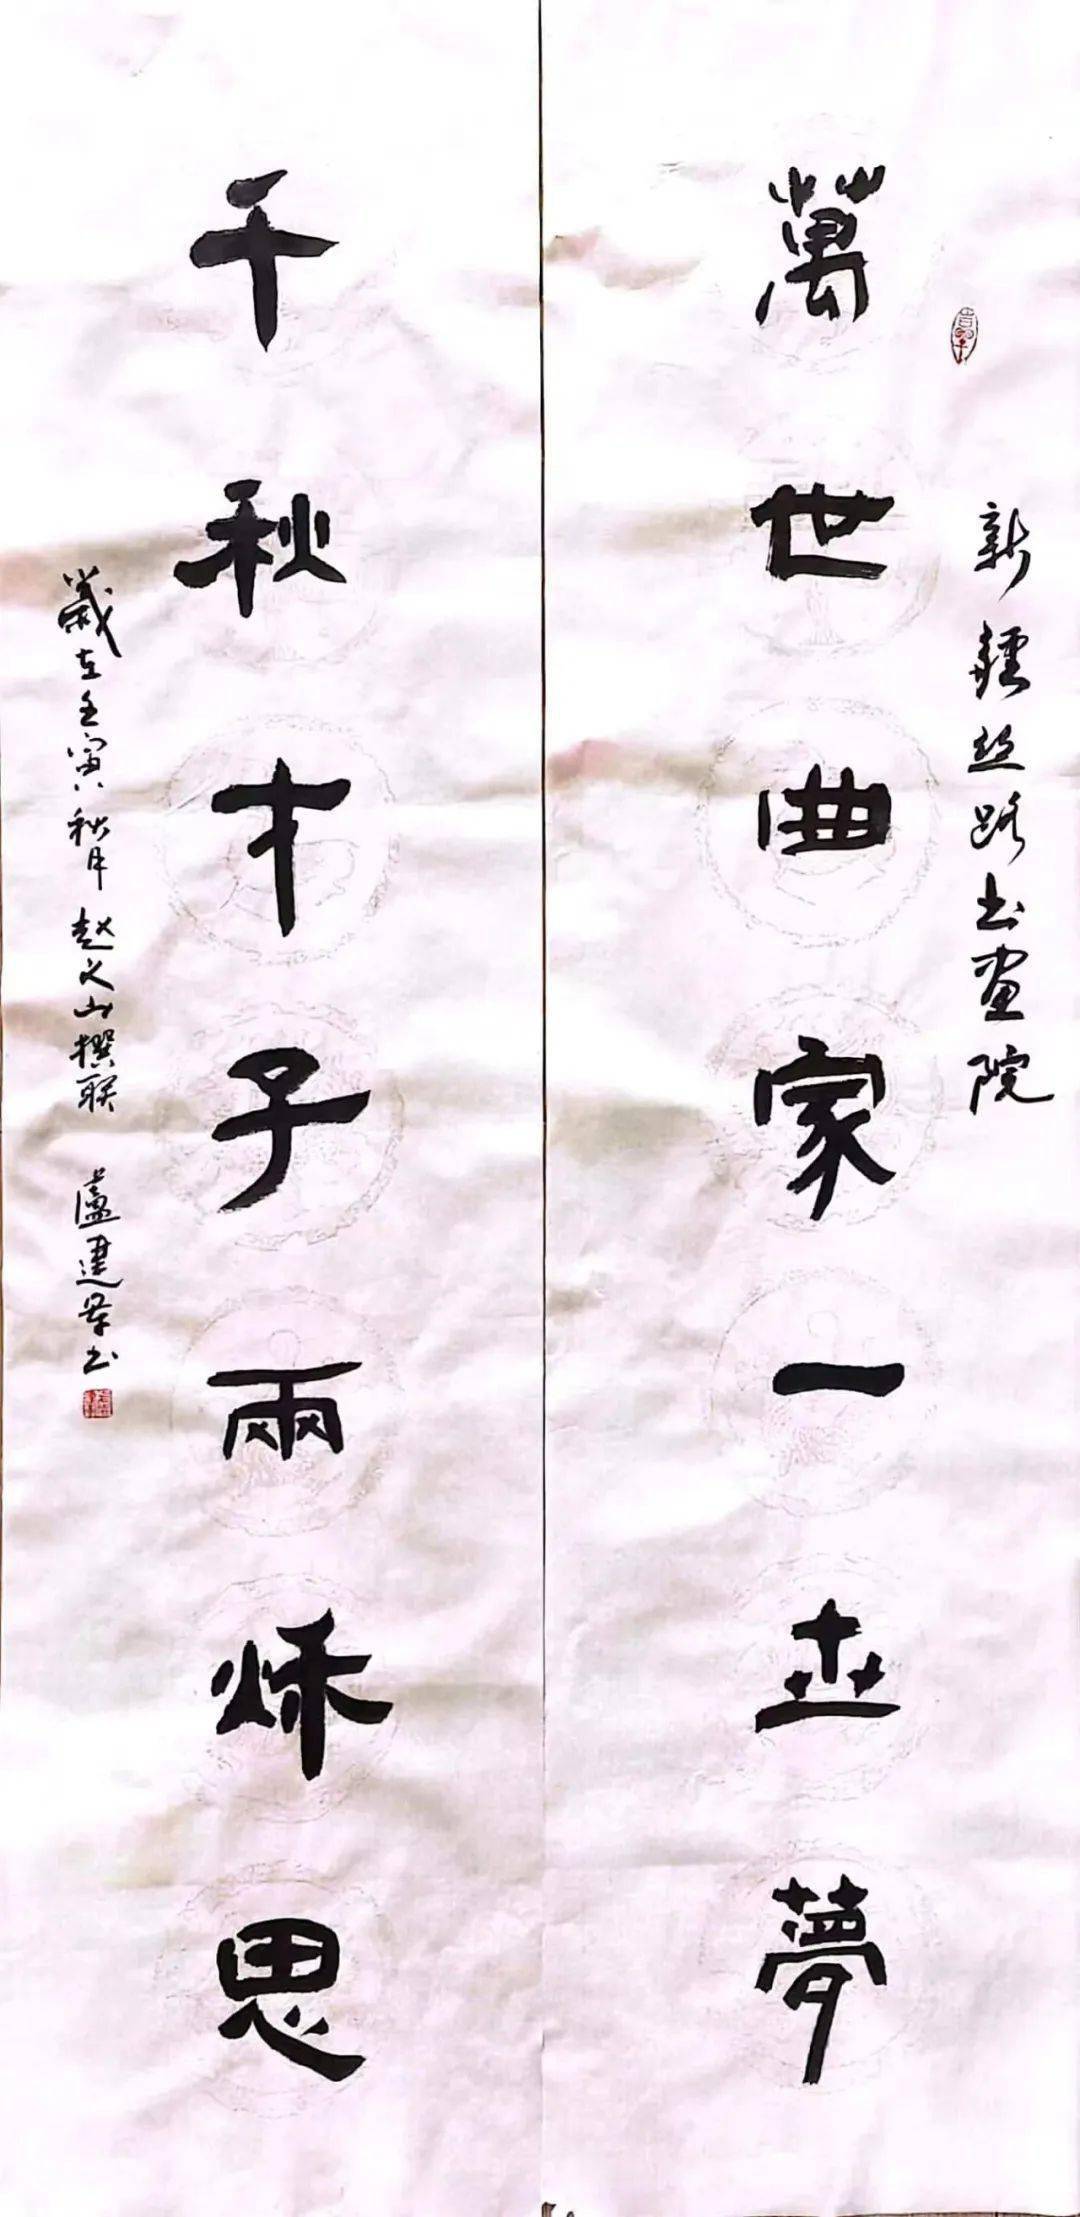 新疆丝路书画院
萬世曲家一卋夢
千秋才子兩秌思
歲在壬寅秋月 赵义山撰联 盧建书